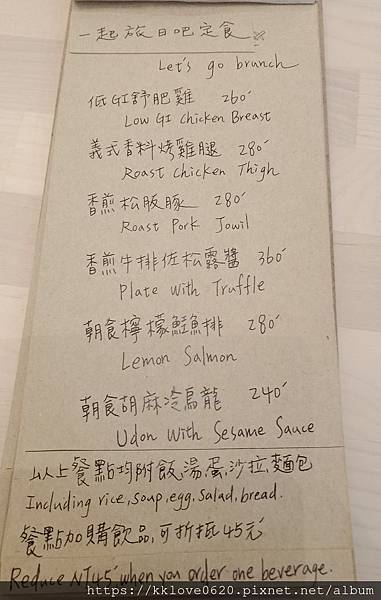 一起旅日吧定食
Let's go brunch
低GI舒肥雞 260
Low GI Chicken Breast
義式香料烤雞腿 280
Roast Chicken Thigh
香煎松阪豚 280
Roast Pork Jowil
香煎牛排佐松露醬 360
Plate with Truffle
朝食檸檬鮭魚排 280
Lemon Salmon
朝食胡麻冷烏龍 240
Udon With Sesame Sauce
以上餐點均附飯,湯,蛋,沙拉,麵包
Including rice, soup, egg, salad, bread.
餐點加購飲品,可折抵45元
Reduce NT45 when you order one beverage.
https://kklove0620.pixnet.net/album